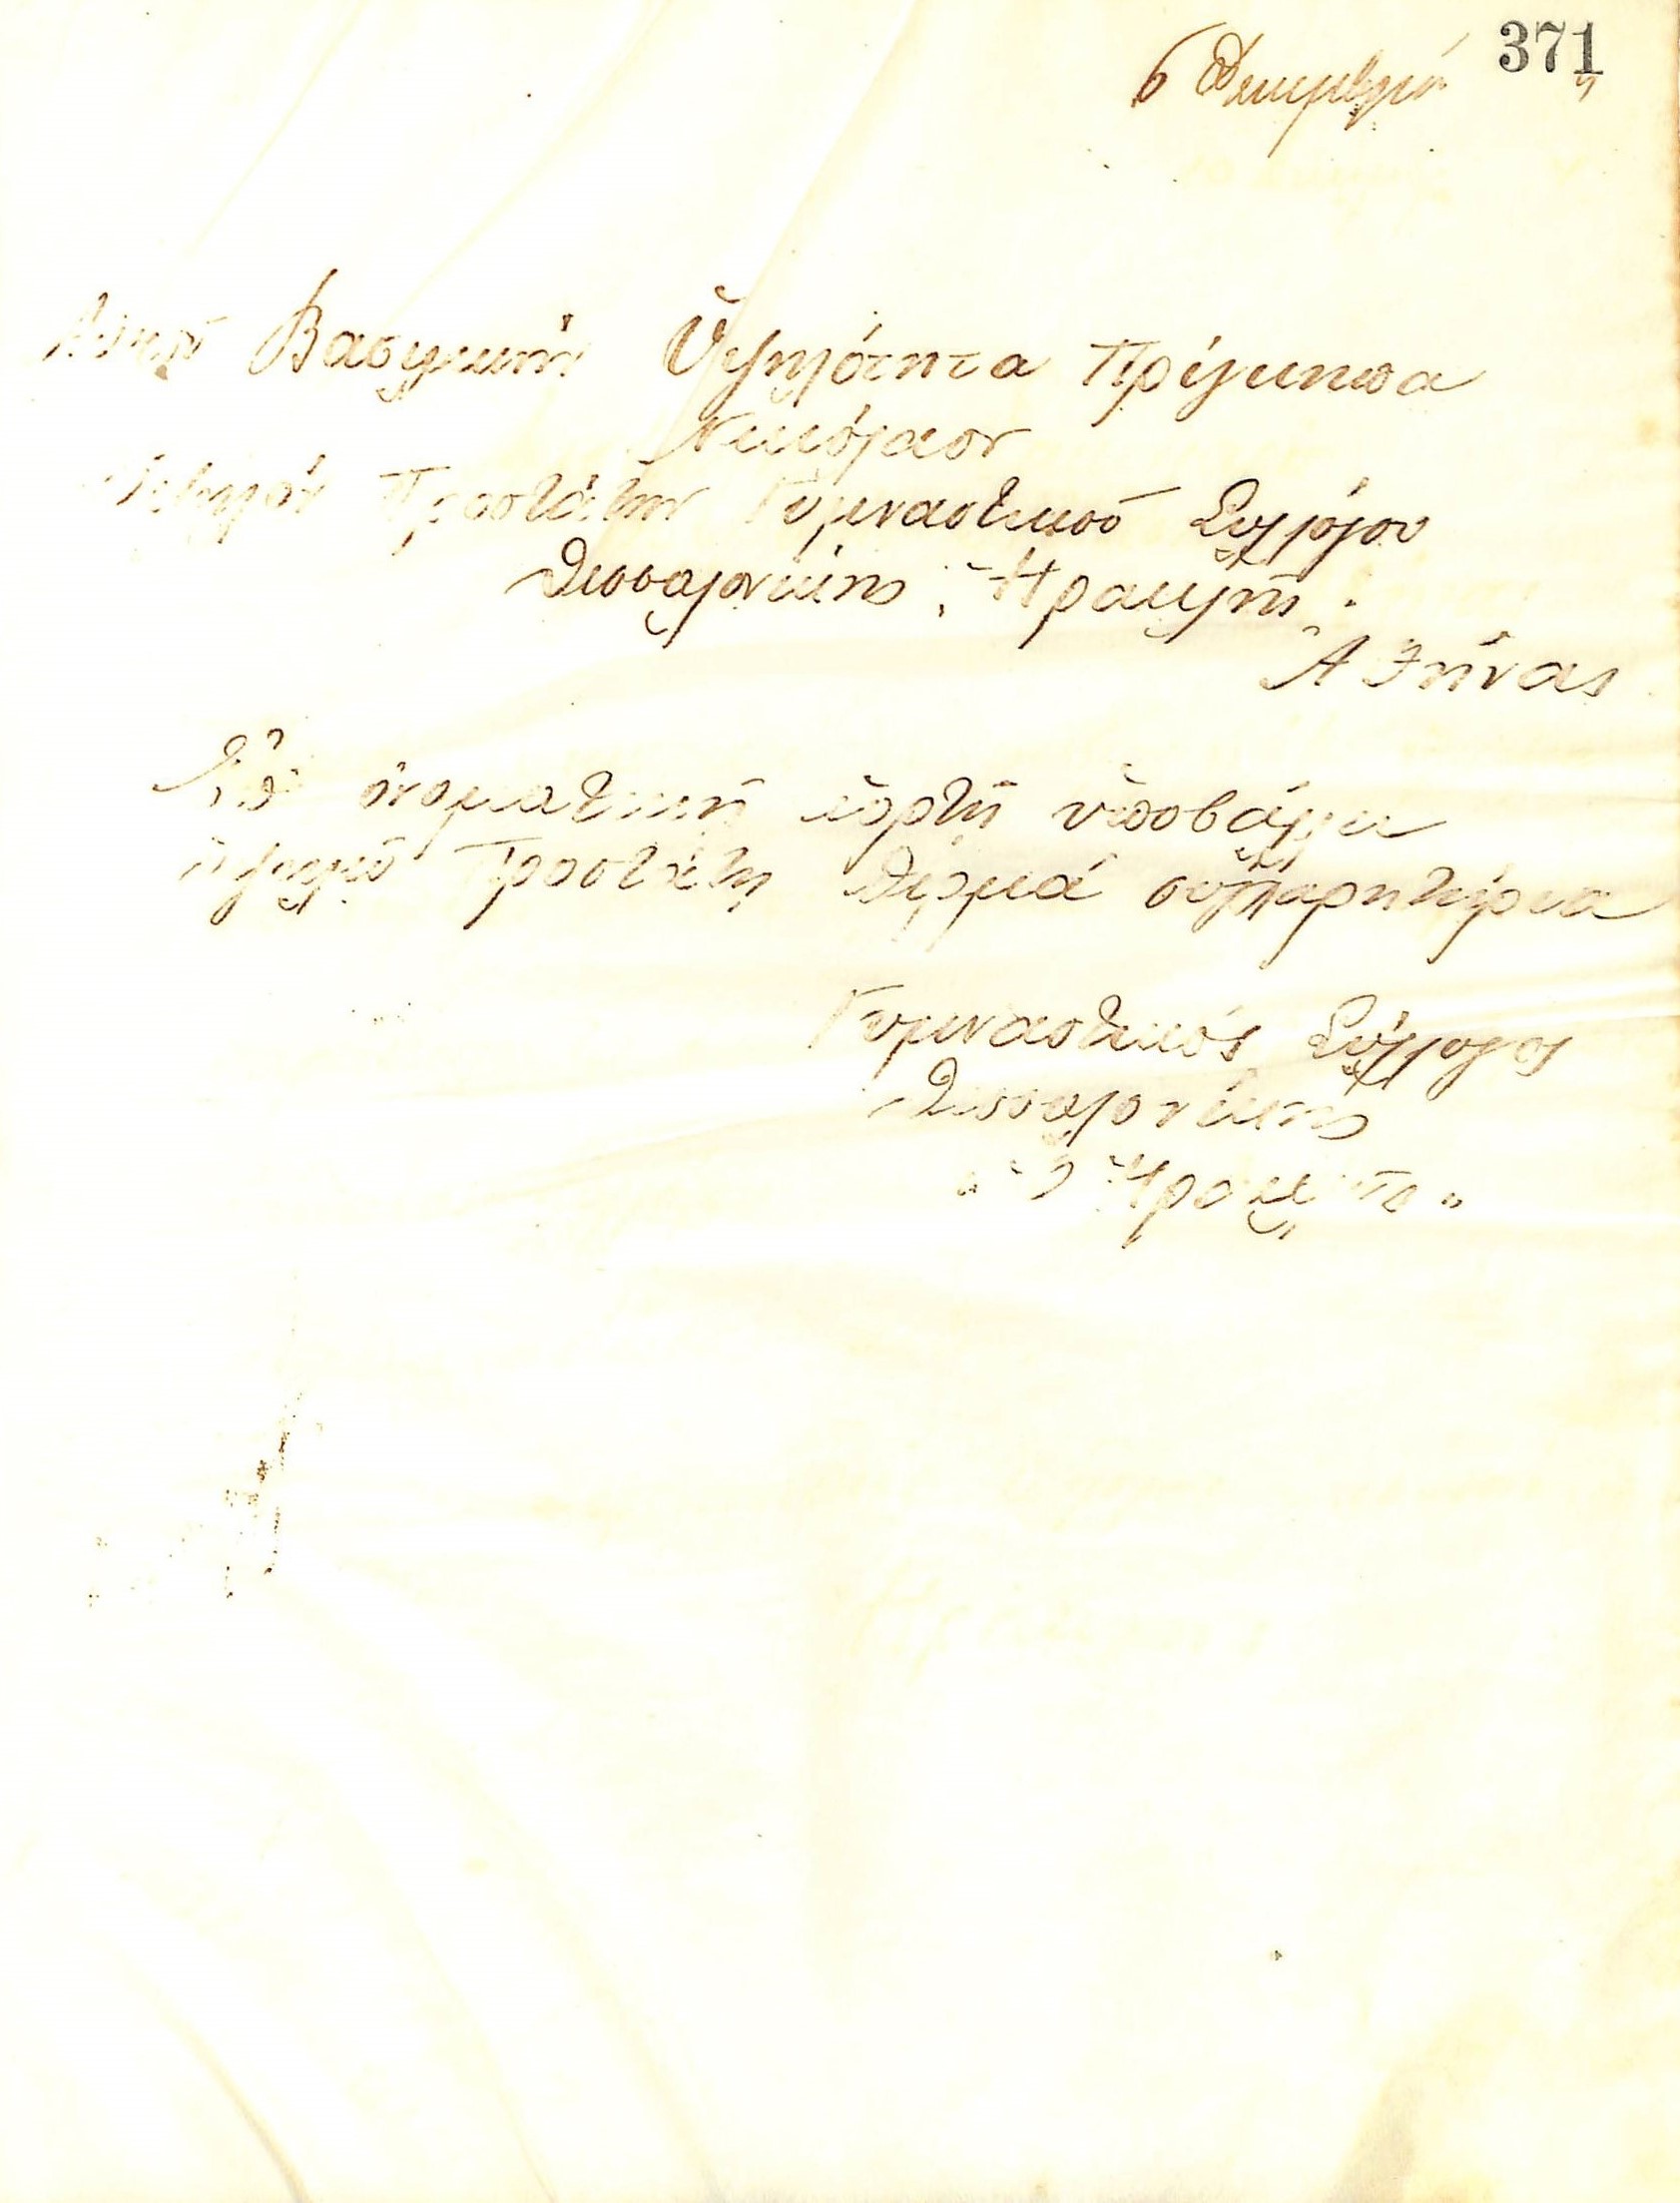 371
6 Δεκεμβρίου
Αὐτοῦ Βασιλικήν Ὑψηλότητα Πρίγκηπα
Νικόλαον
Ὑψηλόν Προστάτην Γυμναστικοῦ Συλλόγου
Θεσσαλονίκης "Ἡρακλῆς"
Ἀθήνας
Ἐπί ὀνομαστικῇ ἑορτῇ ὑποβάλλει
ὑψηλῷ Προστάτῃ θερμά συγχαρητήρια
Γυμναστικός Σύλλογος
Θεσσαλονίκης
"Ὁ Ἡρακλῆς"